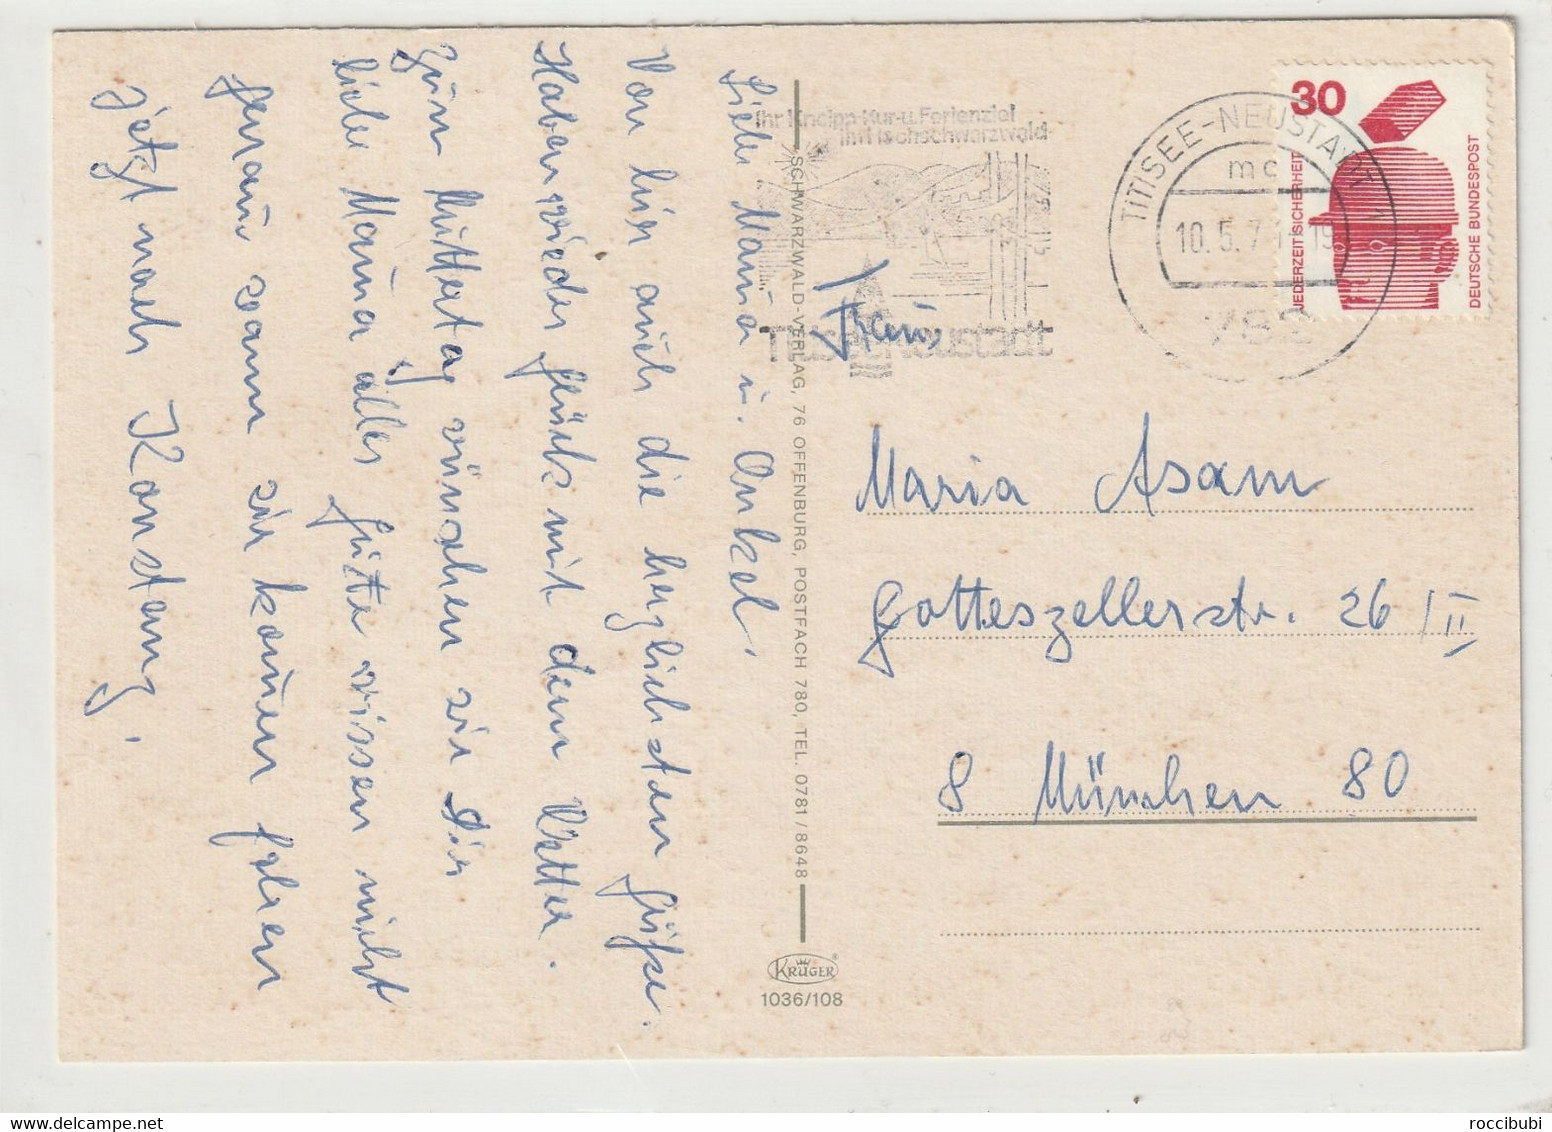 Liebe Mama u. Onkel,
Von hier auch die herzlichsten Grüße.
Haben wieder Glück mit dem Wetter.
Zum Muttertag wünschen wir Dir
liebe Mama alles Gute wissen nicht
genau wann wir kommen fahren
jetzt nach Konstanz.
Ihr Kneipp-Kur-u. Ferienziel
im Hochschwarzwald
Titisee-Neustadt
TITISEE-NEUSTADT 1
mc
10.5.7
782
30
JEDERZEIT SICHERHEIT
DEUTSCHE BUNDESPOST
Maria Asam
Gotteszellerstr. 26/II
8 München 80
SCHWARZWALD-VERLAG, 76 OFFENBURG, POSTFACH 780, TEL. 0781/8648
KRÜGER
1036/108
roccibubi